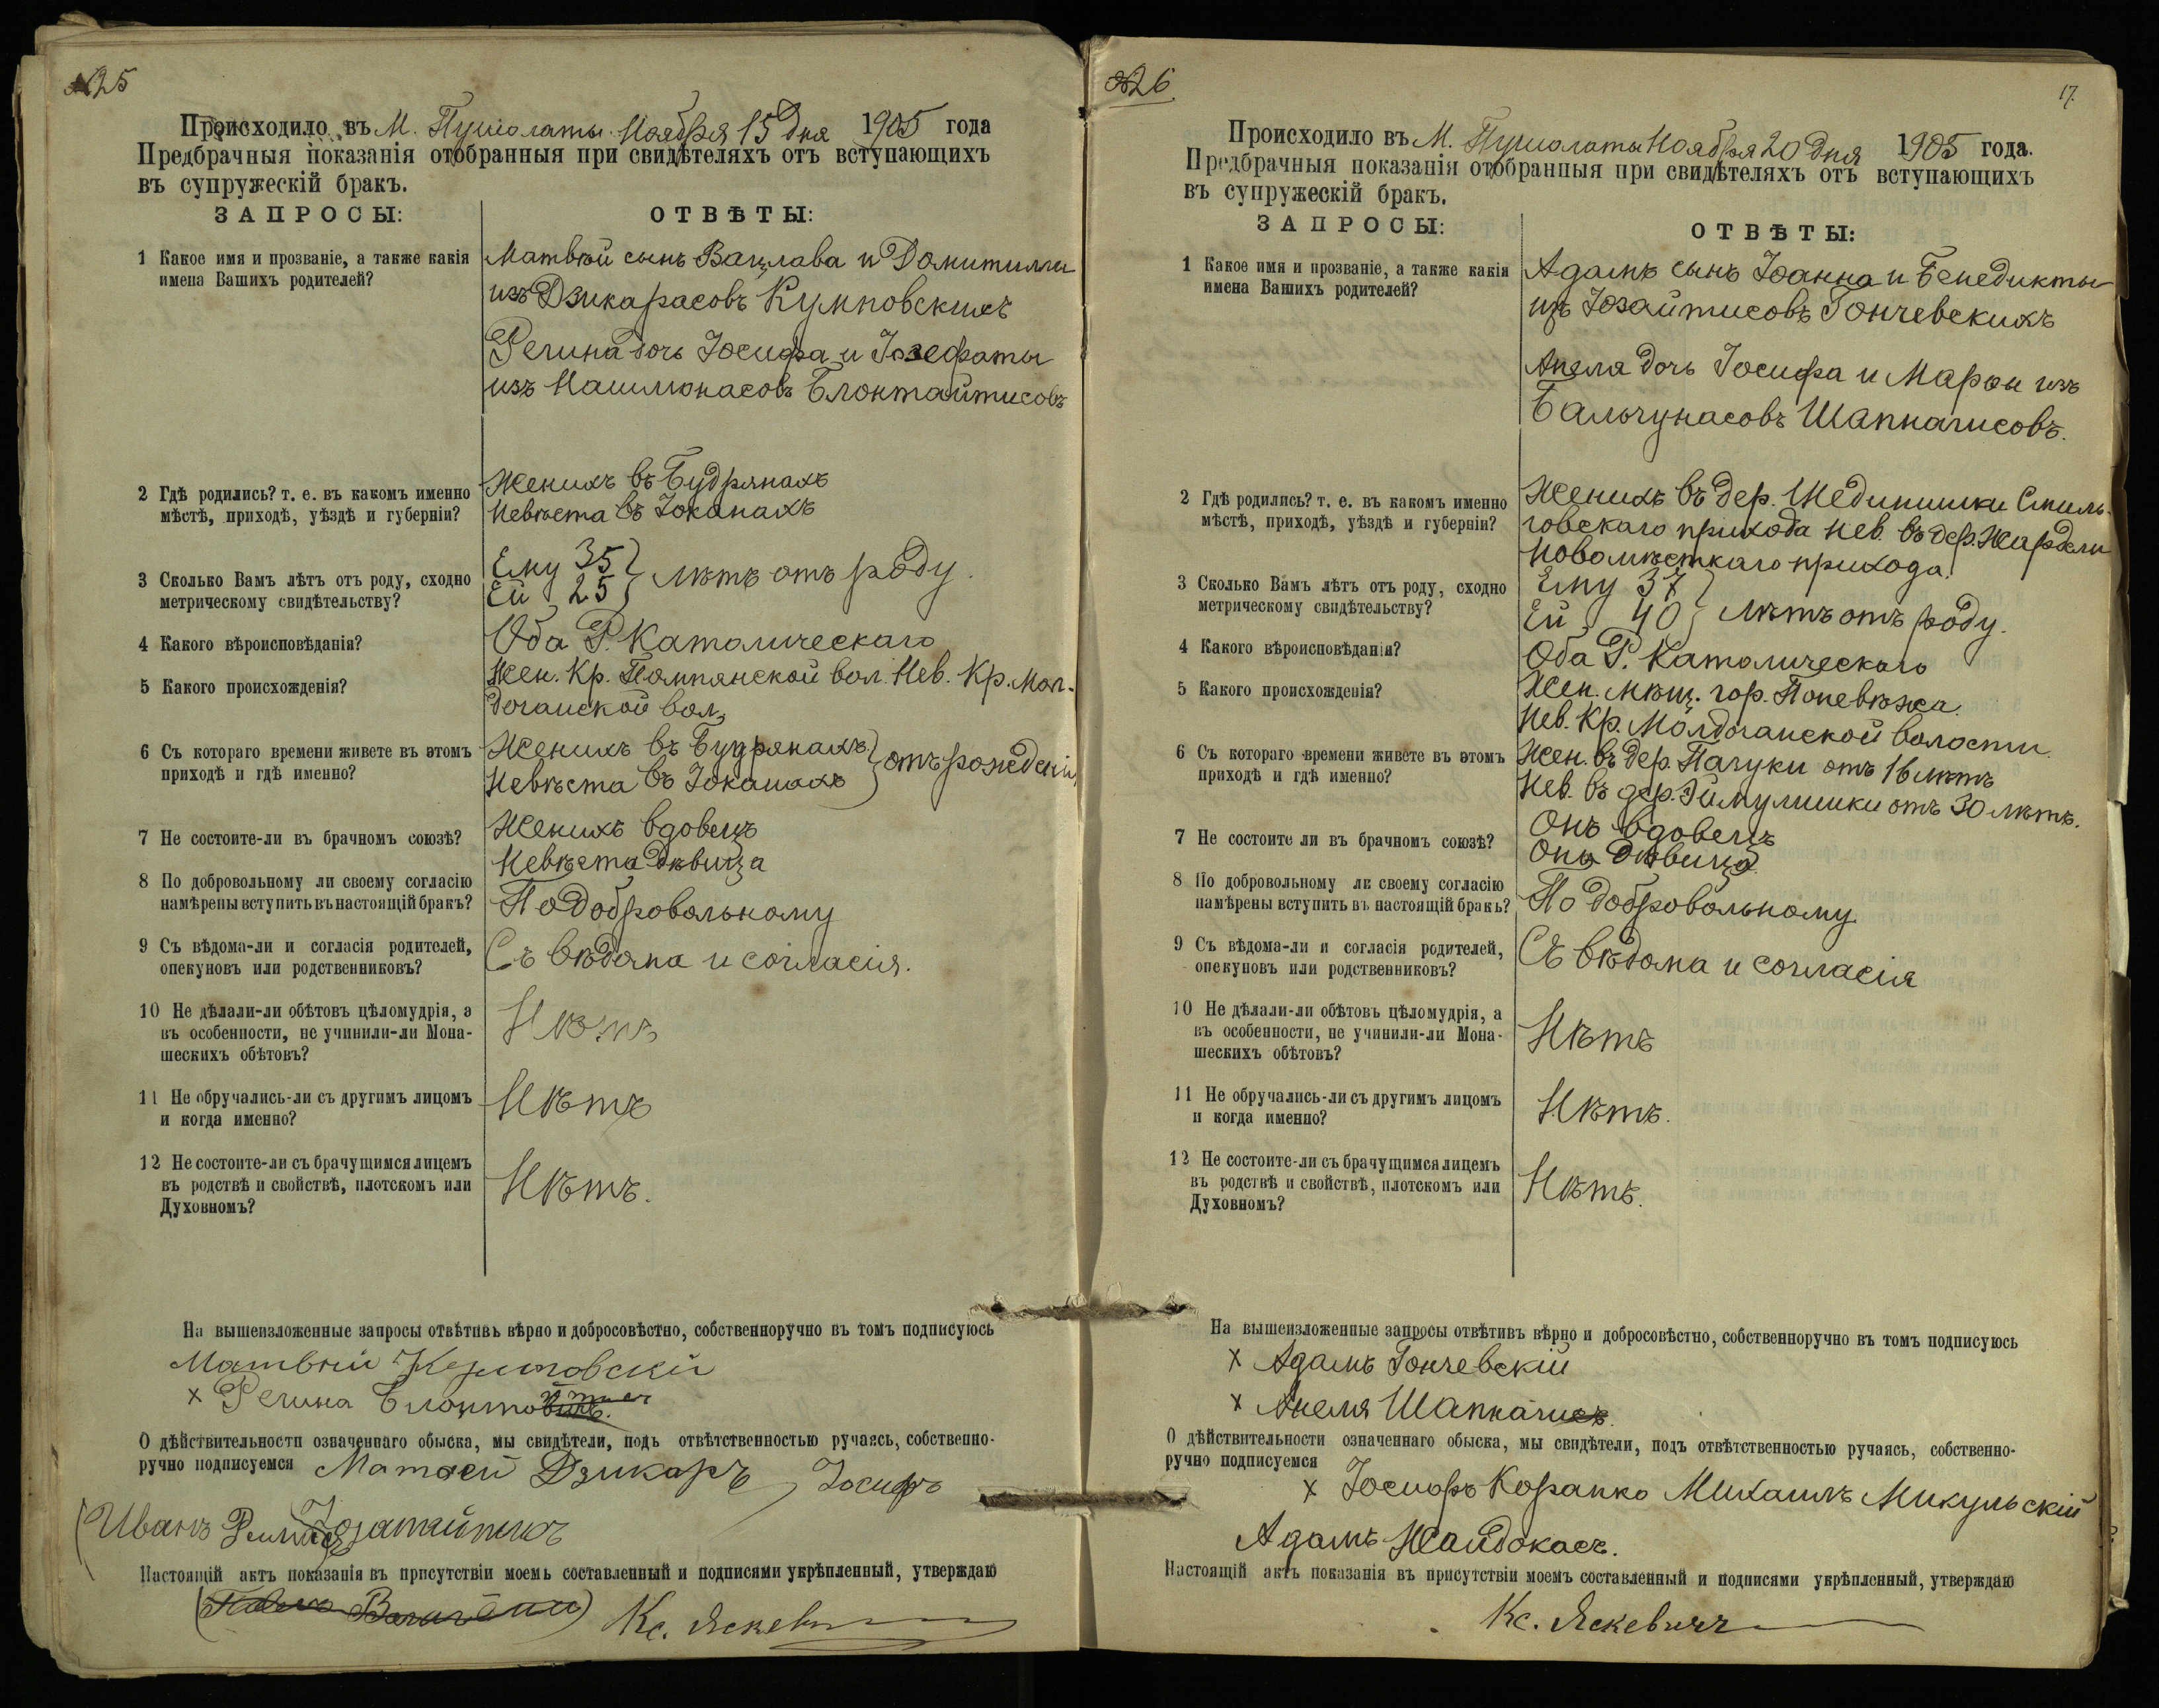 №25
Происходило въ М. Пушолаты Ноября 15 дня 1905 года
Предбрачныя показанія отобранныя при свидѣтеляхъ отъ вступающихъ
въ супружескій бракъ.
ЗАПРОСЫ:
ОТВѢТЫ:
1 Какое имя и прозваніе, а также какія
имена Вашихъ родителей?
Матвѣй сынъ Вацлава и Домитилли
изъ Дзикарасовъ Кумповскихъ
Регина дочь Іосифа и Іозефаты
изъ Нашлюнасовъ Блонтайтисовъ
2 Гдѣ родились? т. е. въ какомъ именно
мѣстѣ, приходѣ, уѣздѣ и губерніи?
Женихъ въ Будрянахъ
Невѣста въ Іоканахъ
3 Сколько Вамъ лѣтъ отъ роду, сходно
метрическому свидѣтельству?
Ему 35
Ей 25 } лѣтъ отъ роду.
4 Какого вѣроисповѣданія?
Оба Р. Католическаго
5 Какого происхожденія?
Жен. Кр. Помпянской вол. Нев. Кр. Мол-
дочанской вол.
6 Съ котораго времени живете въ этомъ
приходѣ и гдѣ именно?
Женихъ въ Будрянахъ
Невѣста въ Іоканахъ } отъ рожденія
7 Не состоите-ли въ брачномъ союзѣ?
Женихъ вдовецъ
Невѣста дѣвица
8 По добровольному ли своему согласію
намѣрены вступить въ настоящій бракъ?
По добровольному
9 Съ вѣдома-ли и согласія родителей,
опекуновъ или родственниковъ?
Съ вѣдома и согласія.
10 Не дѣлали-ли обѣтовъ цѣломудрія, а
въ особенности, не учинили-ли Мона-
шескихъ обѣтовъ?
Нѣтъ
11 Не обручались-ли съ другимъ лицомъ
и когда именно?
Нѣтъ
12 Не состоите-ли съ брачущимся лицемъ
въ родствѣ и свойствѣ, плотскомъ или
Духовномъ?
Нѣтъ.
На вышеизложенные запросы отвѣтивъ вѣрно и добросовѣстно, собственноручно въ томъ подписуюсь
Матвѣй Кумповскій
x Регина
О дѣйствительности означеннаго обыска, мы свидѣтели, подъ отвѣтственностью ручаясь, собственно-
ручно подписуемся Матвей Дзикаръ, Іосифъ
(Иванъ
Настоящій актъ показанія въ присутствіи моемъ составленный и подписями укрѣпленный, утверждаю
Кс. Яскевичъ
№26
17.
Происходило въ М. Пушолаты Ноября 20 дня 1905 года.
Предбрачныя показанія отобранныя при свидѣтеляхъ отъ вступающихъ
въ супружескій бракъ.
ЗАПРОСЫ:
ОТВѢТЫ:
1 Какое имя и прозваніе, а также какія
имена Вашихъ родителей?
Адамъ сынъ Іоанна и Бенедикты
изъ Юзайтисовъ Гончевскихъ
Анеля дочь Іосифа и Марои изъ
Бальчунасовъ Шапнагисовъ.
2 Гдѣ родились? т. е. въ какомъ именно
мѣстѣ, приходѣ, уѣздѣ и губерніи?
Женихъ въ дер. Смиль-
говскаго прихода Нев. въ дер. Жардели
Новомѣсткаго прихода.
3 Сколько Вамъ лѣтъ отъ роду, сходно
метрическому свидѣтельству?
Ему 37
Ей 40 } лѣтъ отъ роду.
4 Какого вѣроисповѣданія?
Оба Р. Католическаго
5 Какого происхожденія?
Жен. мѣщ. гор. Поневѣжа
Нев. Кр. Молдочанской волости
6 Съ котораго времени живете въ этомъ
приходѣ и гдѣ именно?
Жен. въ дер. Пачуки отъ 16 лѣтъ
Нев. въ дер. Гимулишки отъ 30 лѣтъ.
7 Не состоите ли въ брачномъ союзѣ?
Онъ вдовецъ
Она дѣвица
8 По добровольному ли своему согласію
намѣрены вступить въ настоящій бракъ?
По добровольному
9 Съ вѣдома-ли и согласія родителей,
опекуновъ или родственниковъ?
Съ вѣдома и согласія
10 Не дѣлали-ли обѣтовъ цѣломудрія, а
въ особенности, не учинили-ли Мона-
шескихъ обѣтовъ?
Нѣтъ
11 Не обручались-ли съ другимъ лицомъ
и когда именно?
Нѣтъ.
12 Не состоите-ли съ брачущимся лицемъ
въ родствѣ и свойствѣ, плотскомъ или
Духовномъ?
Нѣтъ.
На вышеизложенные запросы отвѣтивъ вѣрно и добросовѣстно, собственноручно въ томъ подписуюсь
x Адамъ Гончевскій
x Анеля Шапнагисъ.
О дѣйствительности означеннаго обыска, мы свидѣтели, подъ отвѣтственностью ручаясь, собственно-
ручно подписуемся
x Іосифъ Корапко Михаилъ Микульскій
Адамъ Жандокасъ.
Настоящій актъ показанія въ присутствіи моемъ составленный и подписями укрѣпленный, утверждаю
Кс. Яскевичъ